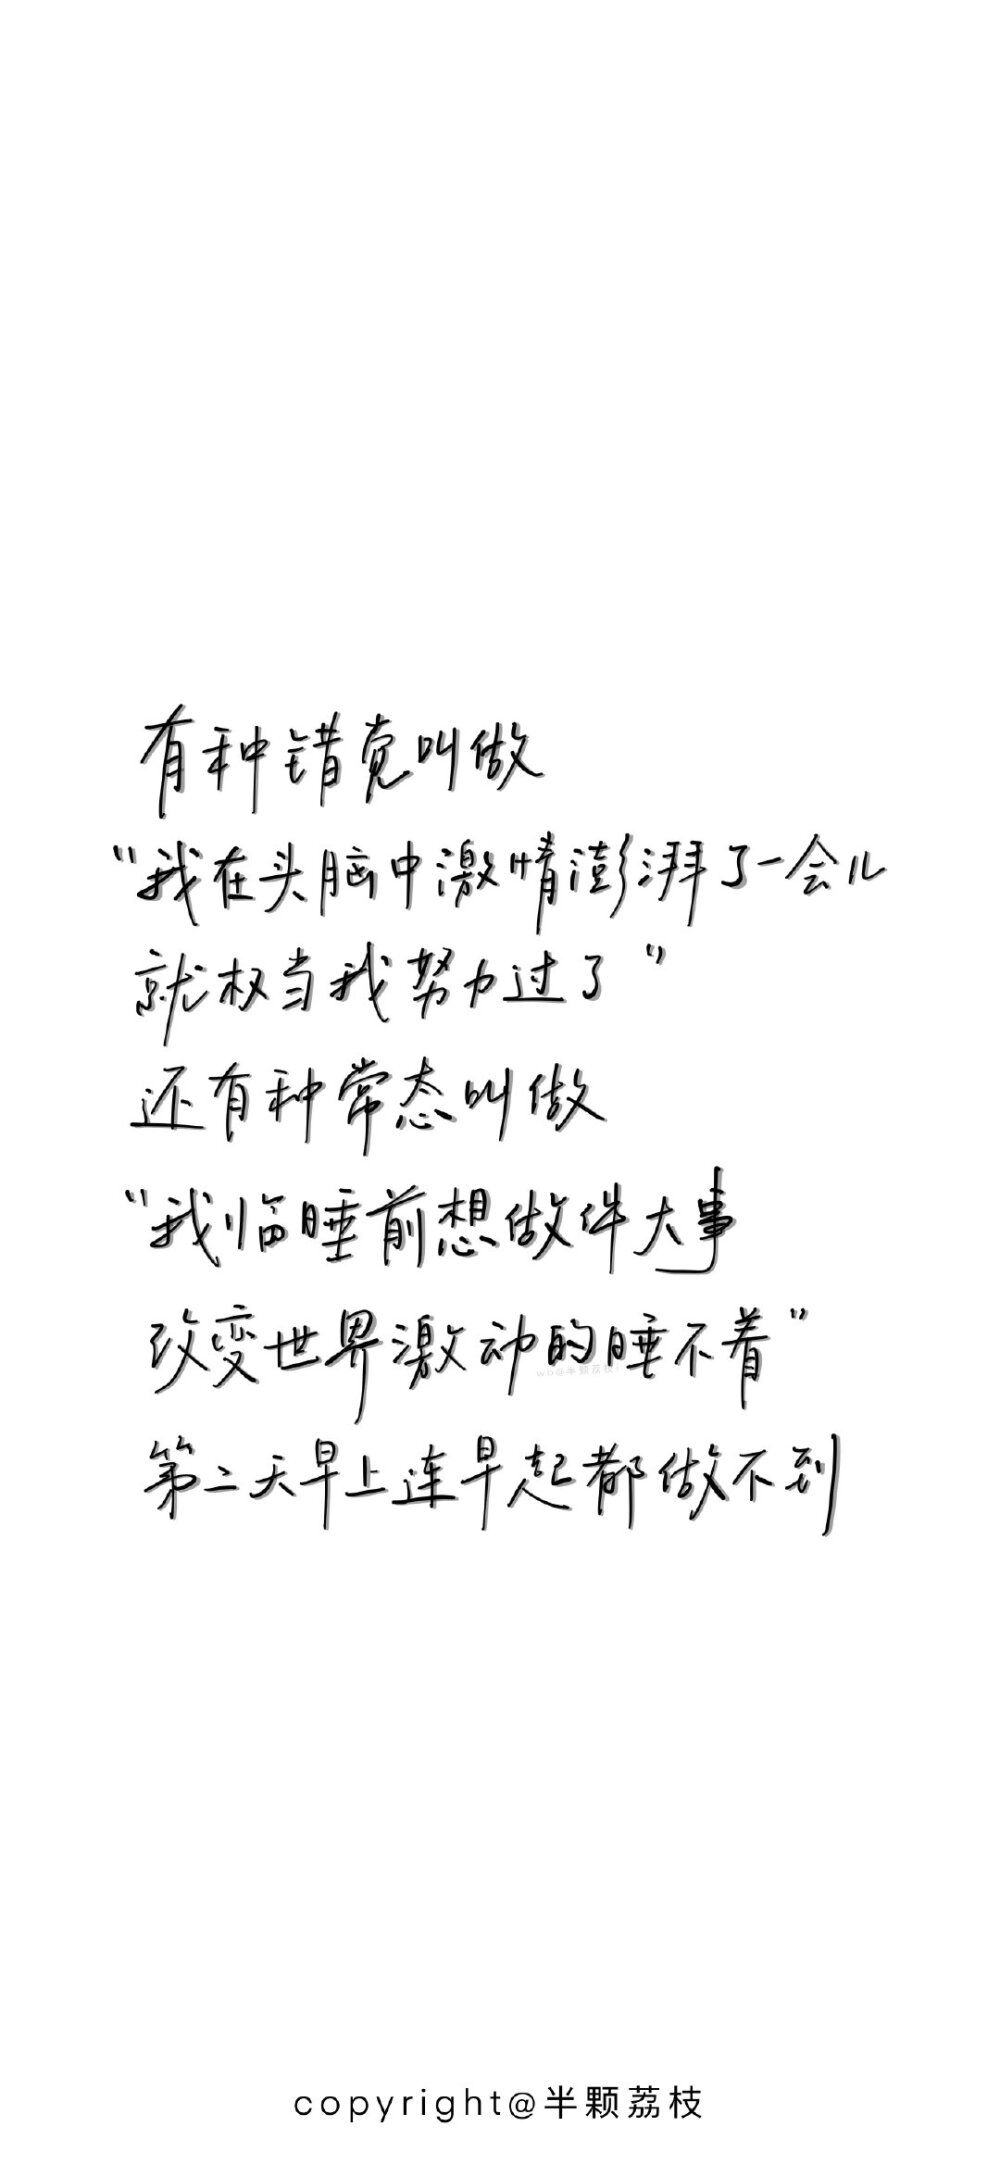 有种错觉叫做
“我在头脑中激情澎湃了一会儿
就权当我努力过了”
还有种常态叫做
“我临睡前想做件大事
改变世界激动的睡不着”
wb@半颗荔枝
第二天早上连早起都做不到
copyright@半颗荔枝